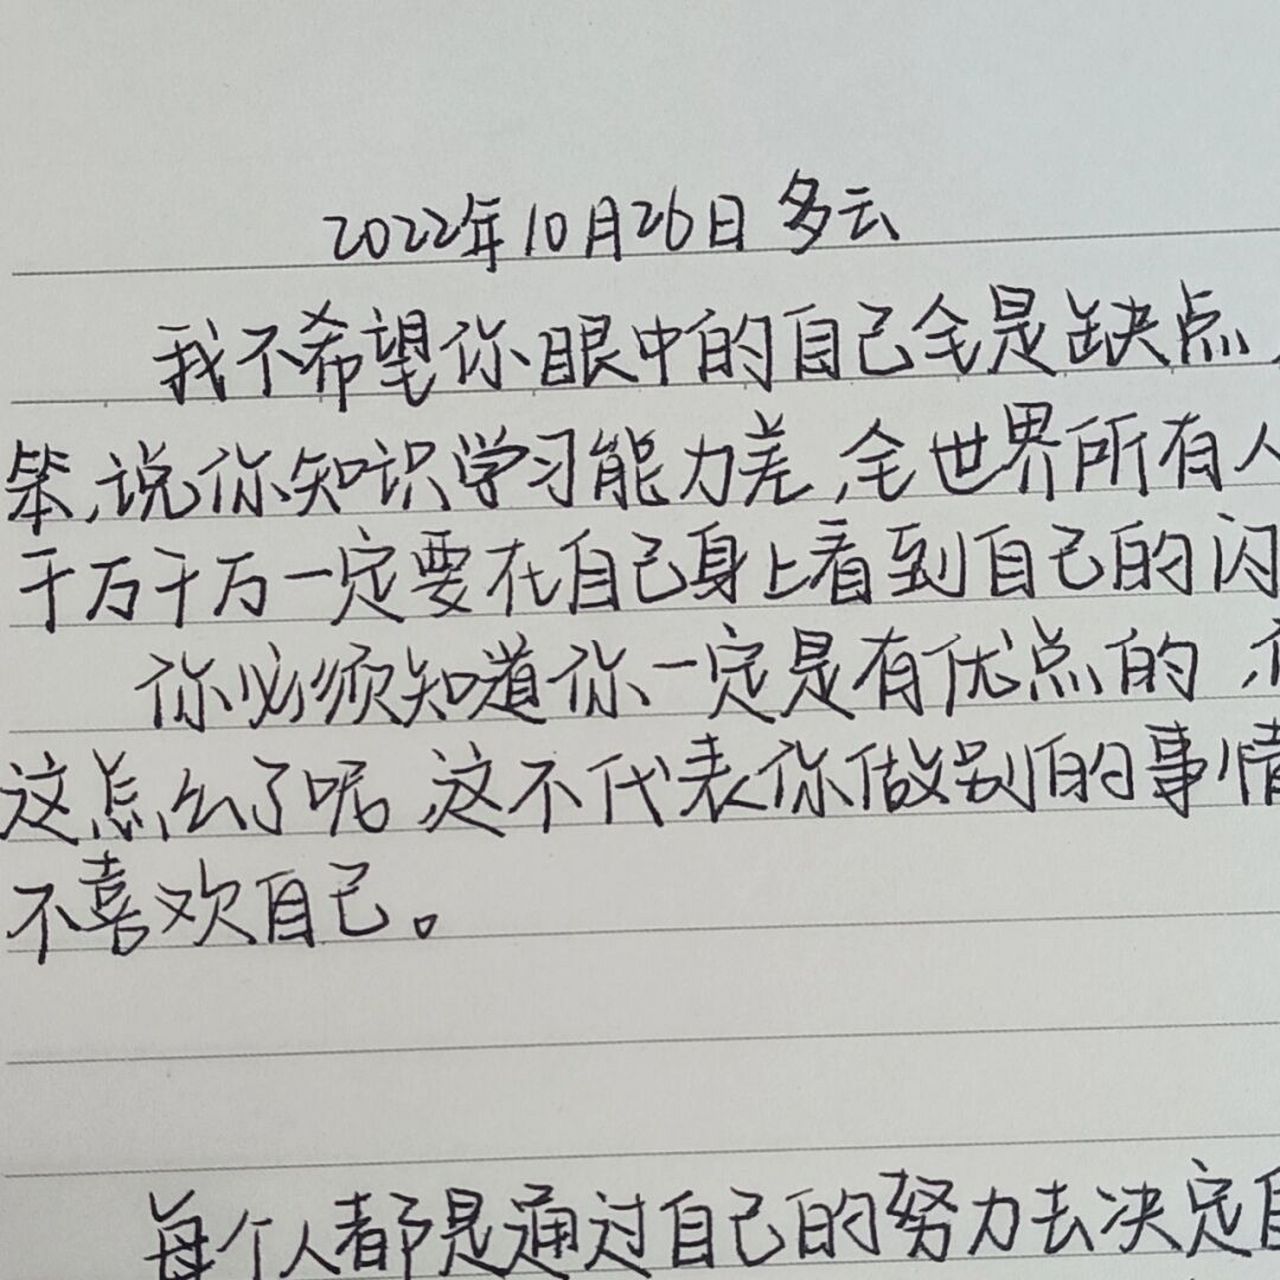 2022年10月26日 多云
我不希望你眼中的自己全是缺点
笨,说你知识学习能力差,全世界所有人
千万千万一定要在自己身上看到自己的闪
你必须知道你一定是有优点的,
这怎么了呢,这不代表你做别的事情
不喜欢自己。
每个人都是通过自己的努力去决定自